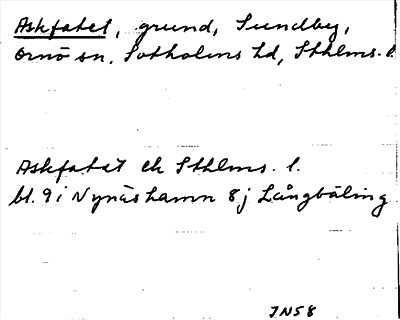 Askfatet, grund, Sundby,
Ornö sn, Sotholms hd, Sthlms. l.
Askfatet ek Sthlms. l.
bl. 9 i Nynäshamn 8j Långbäling
JNS8